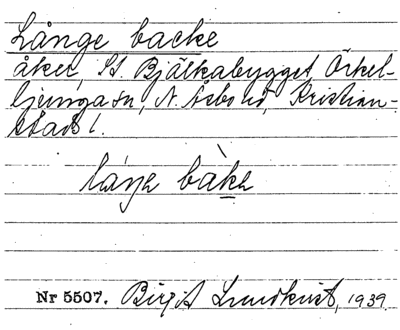 Långe backe
åker, St. Bjälkabygget, Örkel-
ljunga sn, N. Åsbo hd, Kristian-
stads l.
láŋe bàke
Nr 5507. Birgit Lundkvist, 1939.